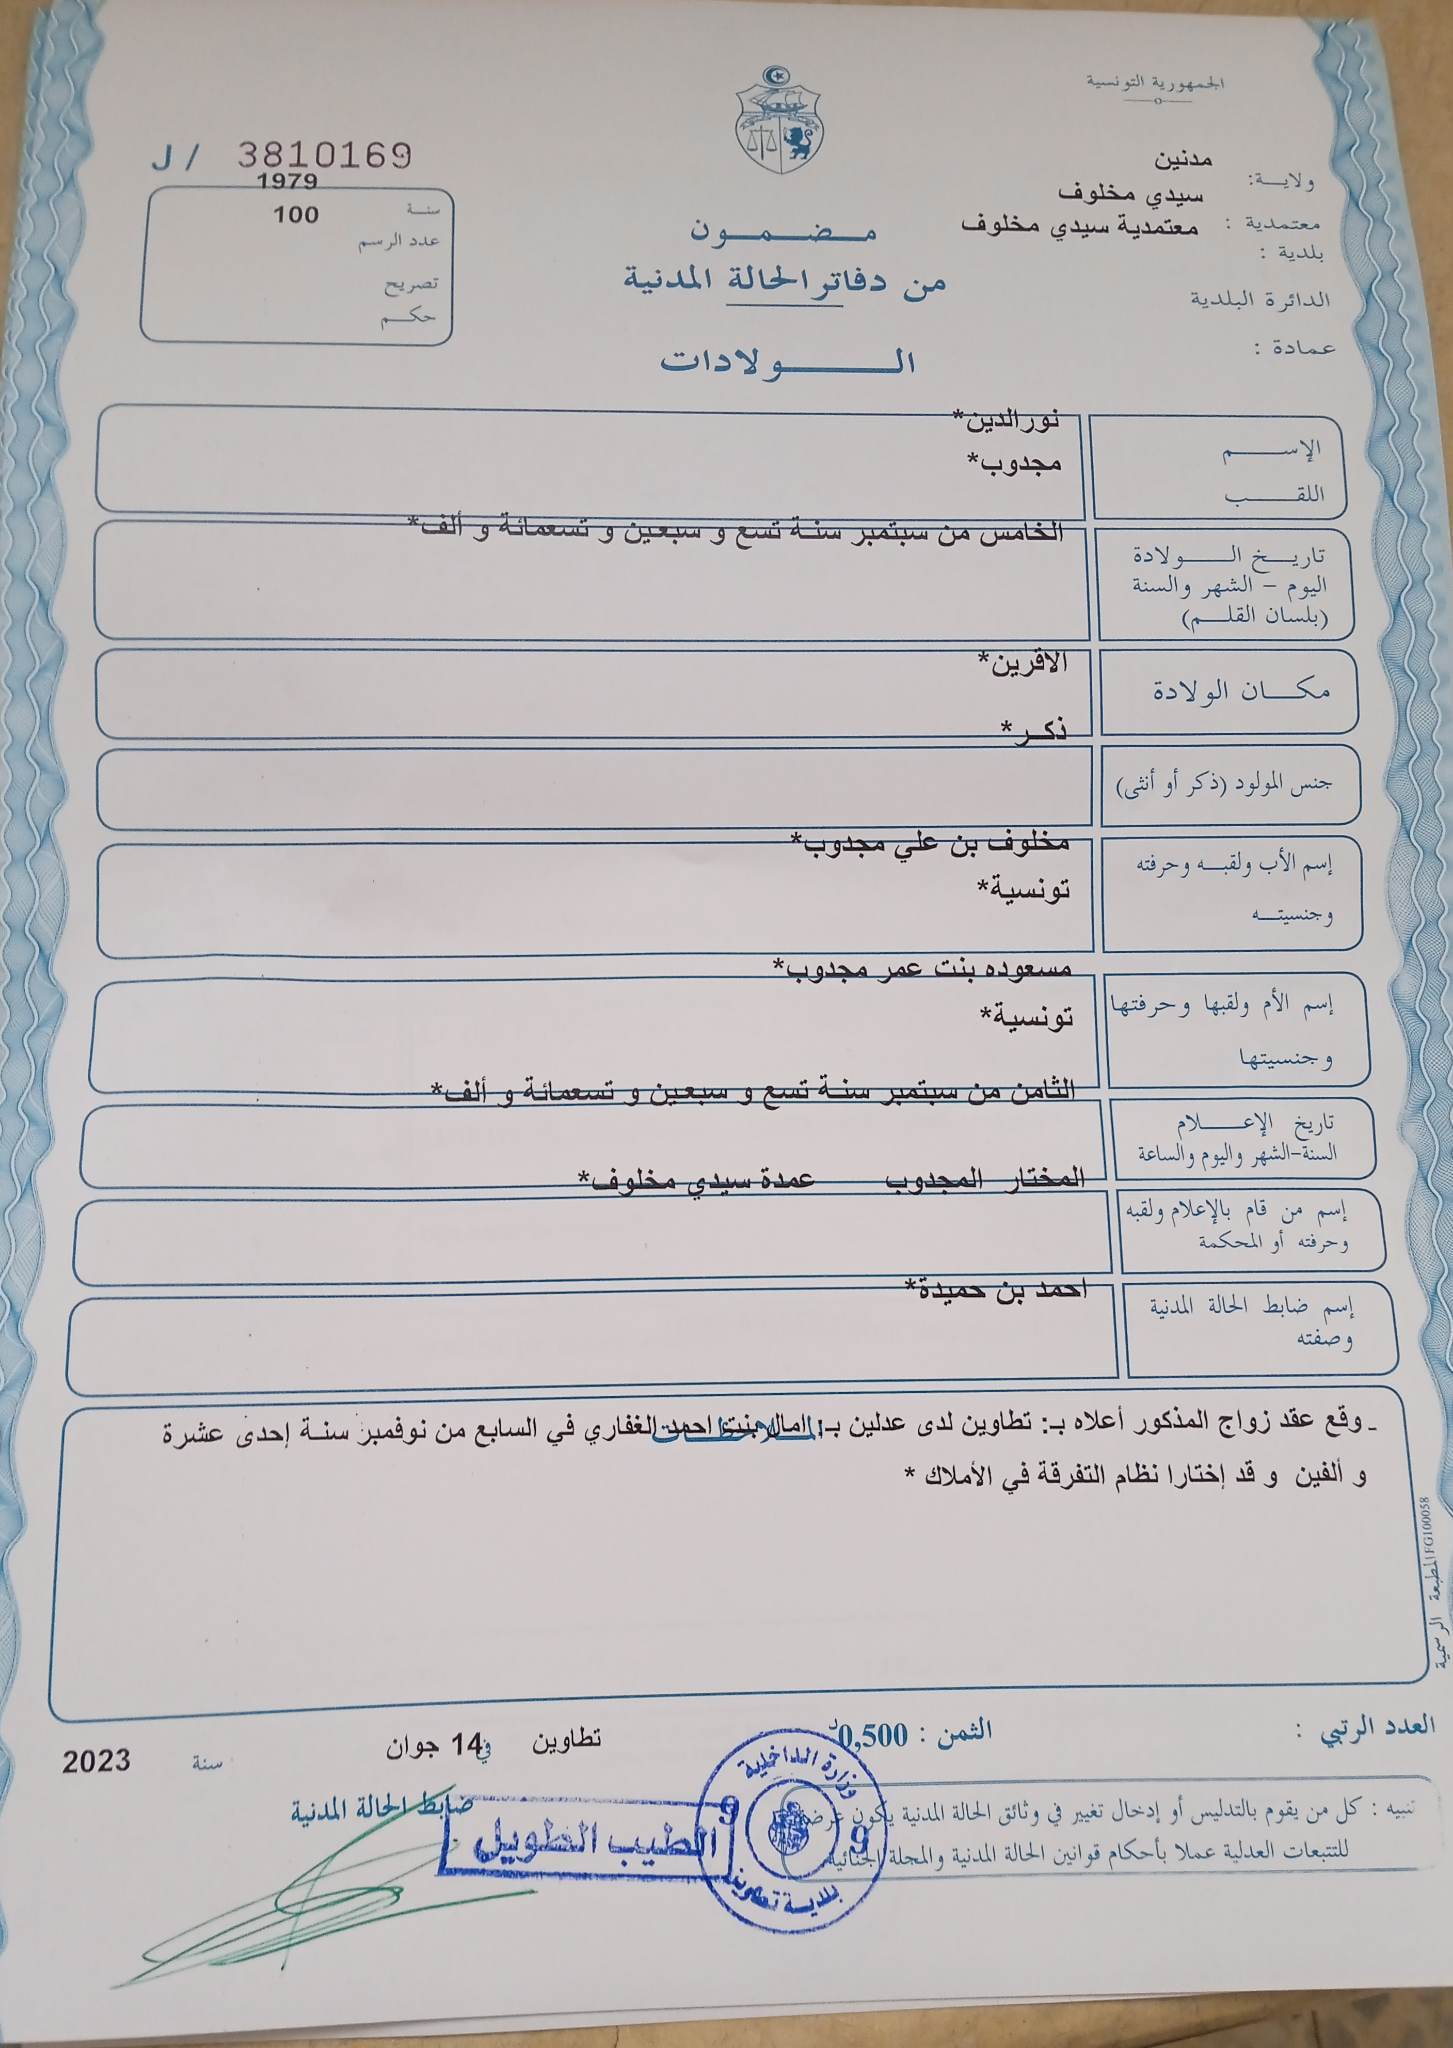 الجمهورية التونسية
J / 3810169
ولايـــة: مدنين
معتمدية : سيدي مخلوف
بلدية : معتمدية سيدي مخلوف
الدائرة البلدية
عمادة :
سنــة 1979
عدد الرسم 100
تصريح
حكــم
مـــضـــمـــون
من دفاتر الحالة المدنية
الـــــــولادات
الإســـــم نورالدين*
اللقـــــب مجدوب*
تاريــخ الــــولادة الخامس من سبتمبر سنـة تسع و سبعين و تسعمائة و ألف*
اليوم – الشهر والسنة
(بلسان القلـــم)
مكـــان الولادة الاقرين*
جنس المولود (ذكر أو أنثى) ذكـر*
إسم الأب ولقبــه وحرفته مخلوف بن علي مجدوب*
وجنسيتــه تونسية*
إسم الأم ولقبها وحرفتها مسعوده بنت عمر مجدوب*
وجنسيتها تونسية*
تاريخ الإعــــلام الثامن من سبتمبر سنـة تسع و سبعين و تسعمائة و ألف*
السنة-الشهر واليوم والساعة
إسم من قام بالإعلام ولقبه المختار المجدوب عمدة سيدي مخلوف*
وحرفته أو المحكمة
إسم ضابط الحالة المدنية احمد بن حميدة*
وصفته
ـ وقع عقد زواج المذكور أعلاه بـ: تطاوين لدى عدلين بـ: امال بنت احمد الغفاري في السابع من نوفمبر سنـة إحدى عشرة
و ألفين و قد إختارا نظام التفرقة في الأملاك *
المطبعة الرسمية IFG100058
العدد الرتبي :
الثمن : 0,500د
تطاوين في 14 جوان سنة 2023
ضابط الحالة المدنية
الطيب الطويل
وزارة الداخلية
9 9
بلدية تطاوين
تنبيه : كل من يقوم بالتدليس أو إدخال تغيير في وثائق الحالة المدنية يكون عرضة
للتتبعات العدلية عملا بأحكام قوانين الحالة المدنية والمجلة الجنائية.